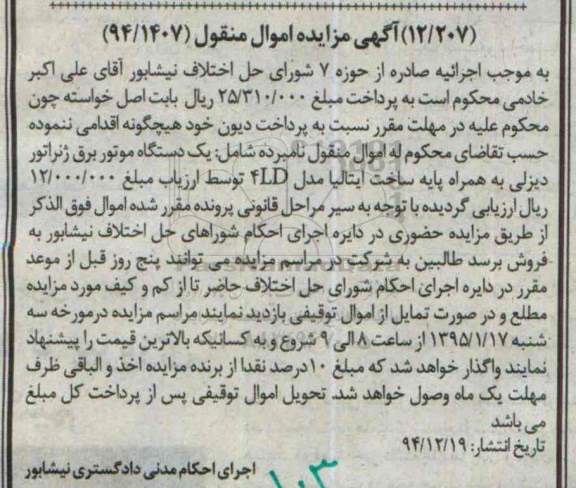 (۱۲/۲۰۷)آگهی مزایده اموال منقول (۹۴/۱۴۰۷)
به موجب اجرائیه صادره از حوزه ۷ شورای حل اختلاف نیشابور آقای علی اکبر
خادمی محکوم است به پرداخت مبلغ ۲۵/۳۱۰/۰۰۰ ریال بابت اصل خواسته چون
محکوم علیه در مهلت مقرر نسبت به پرداخت دیون خود هیچگونه اقدامی ننموده
حسب تقاضای محکوم له اموال منقول نامبرده شامل: یک دستگاه موتور برق ژنراتور
دیزلی به همراه پایه ساخت ایتالیا مدل ۴LD توسط ارزیاب مبلغ ۱۲/۰۰۰/۰۰۰
ریال ارزیابی گردیده با توجه به سیر مراحل قانونی پرونده مقرر شده اموال فوق الذکر
از طریق مزایده حضوری در دایره اجرای احکام شوراهای حل اختلاف نیشابور به
فروش برسد طالبین به شرکت در مراسم مزایده می توانند پنج روز قبل از موعد
مقرر در دایره اجرای احکام شورای حل اختلاف حاضر تا از کم و کیف مورد مزایده
مطلع و در صورت تمایل از اموال توقیفی بازدید نمایند مراسم مزایده درمورخه سه
شنبه ۱۳۹۵/۱/۱۷ از ساعت ۸ الی ۹ شروع و به کسانیکه بالاترین قیمت را پیشنهاد
نمایند واگذار خواهد شد که مبلغ ۱۰درصد نقدا از برنده مزایده اخذ و الباقی ظرف
مهلت یک ماه وصول خواهد شد. تحویل اموال توقیفی پس از پرداخت کل مبلغ
می باشد
تاریخ انتشار: ۹۴/۱۲/۱۹
اجرای احکام مدنی دادگستری نیشابور
۱۰۳